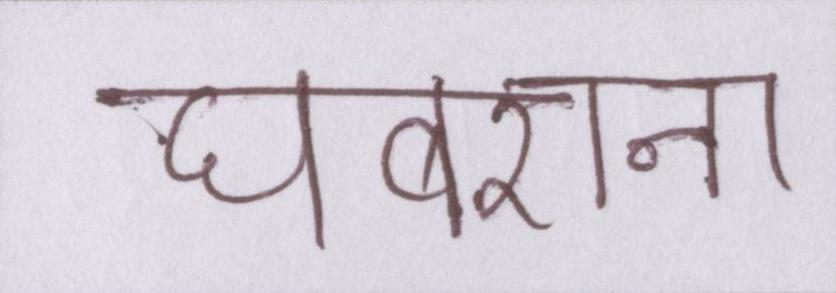 घबराना